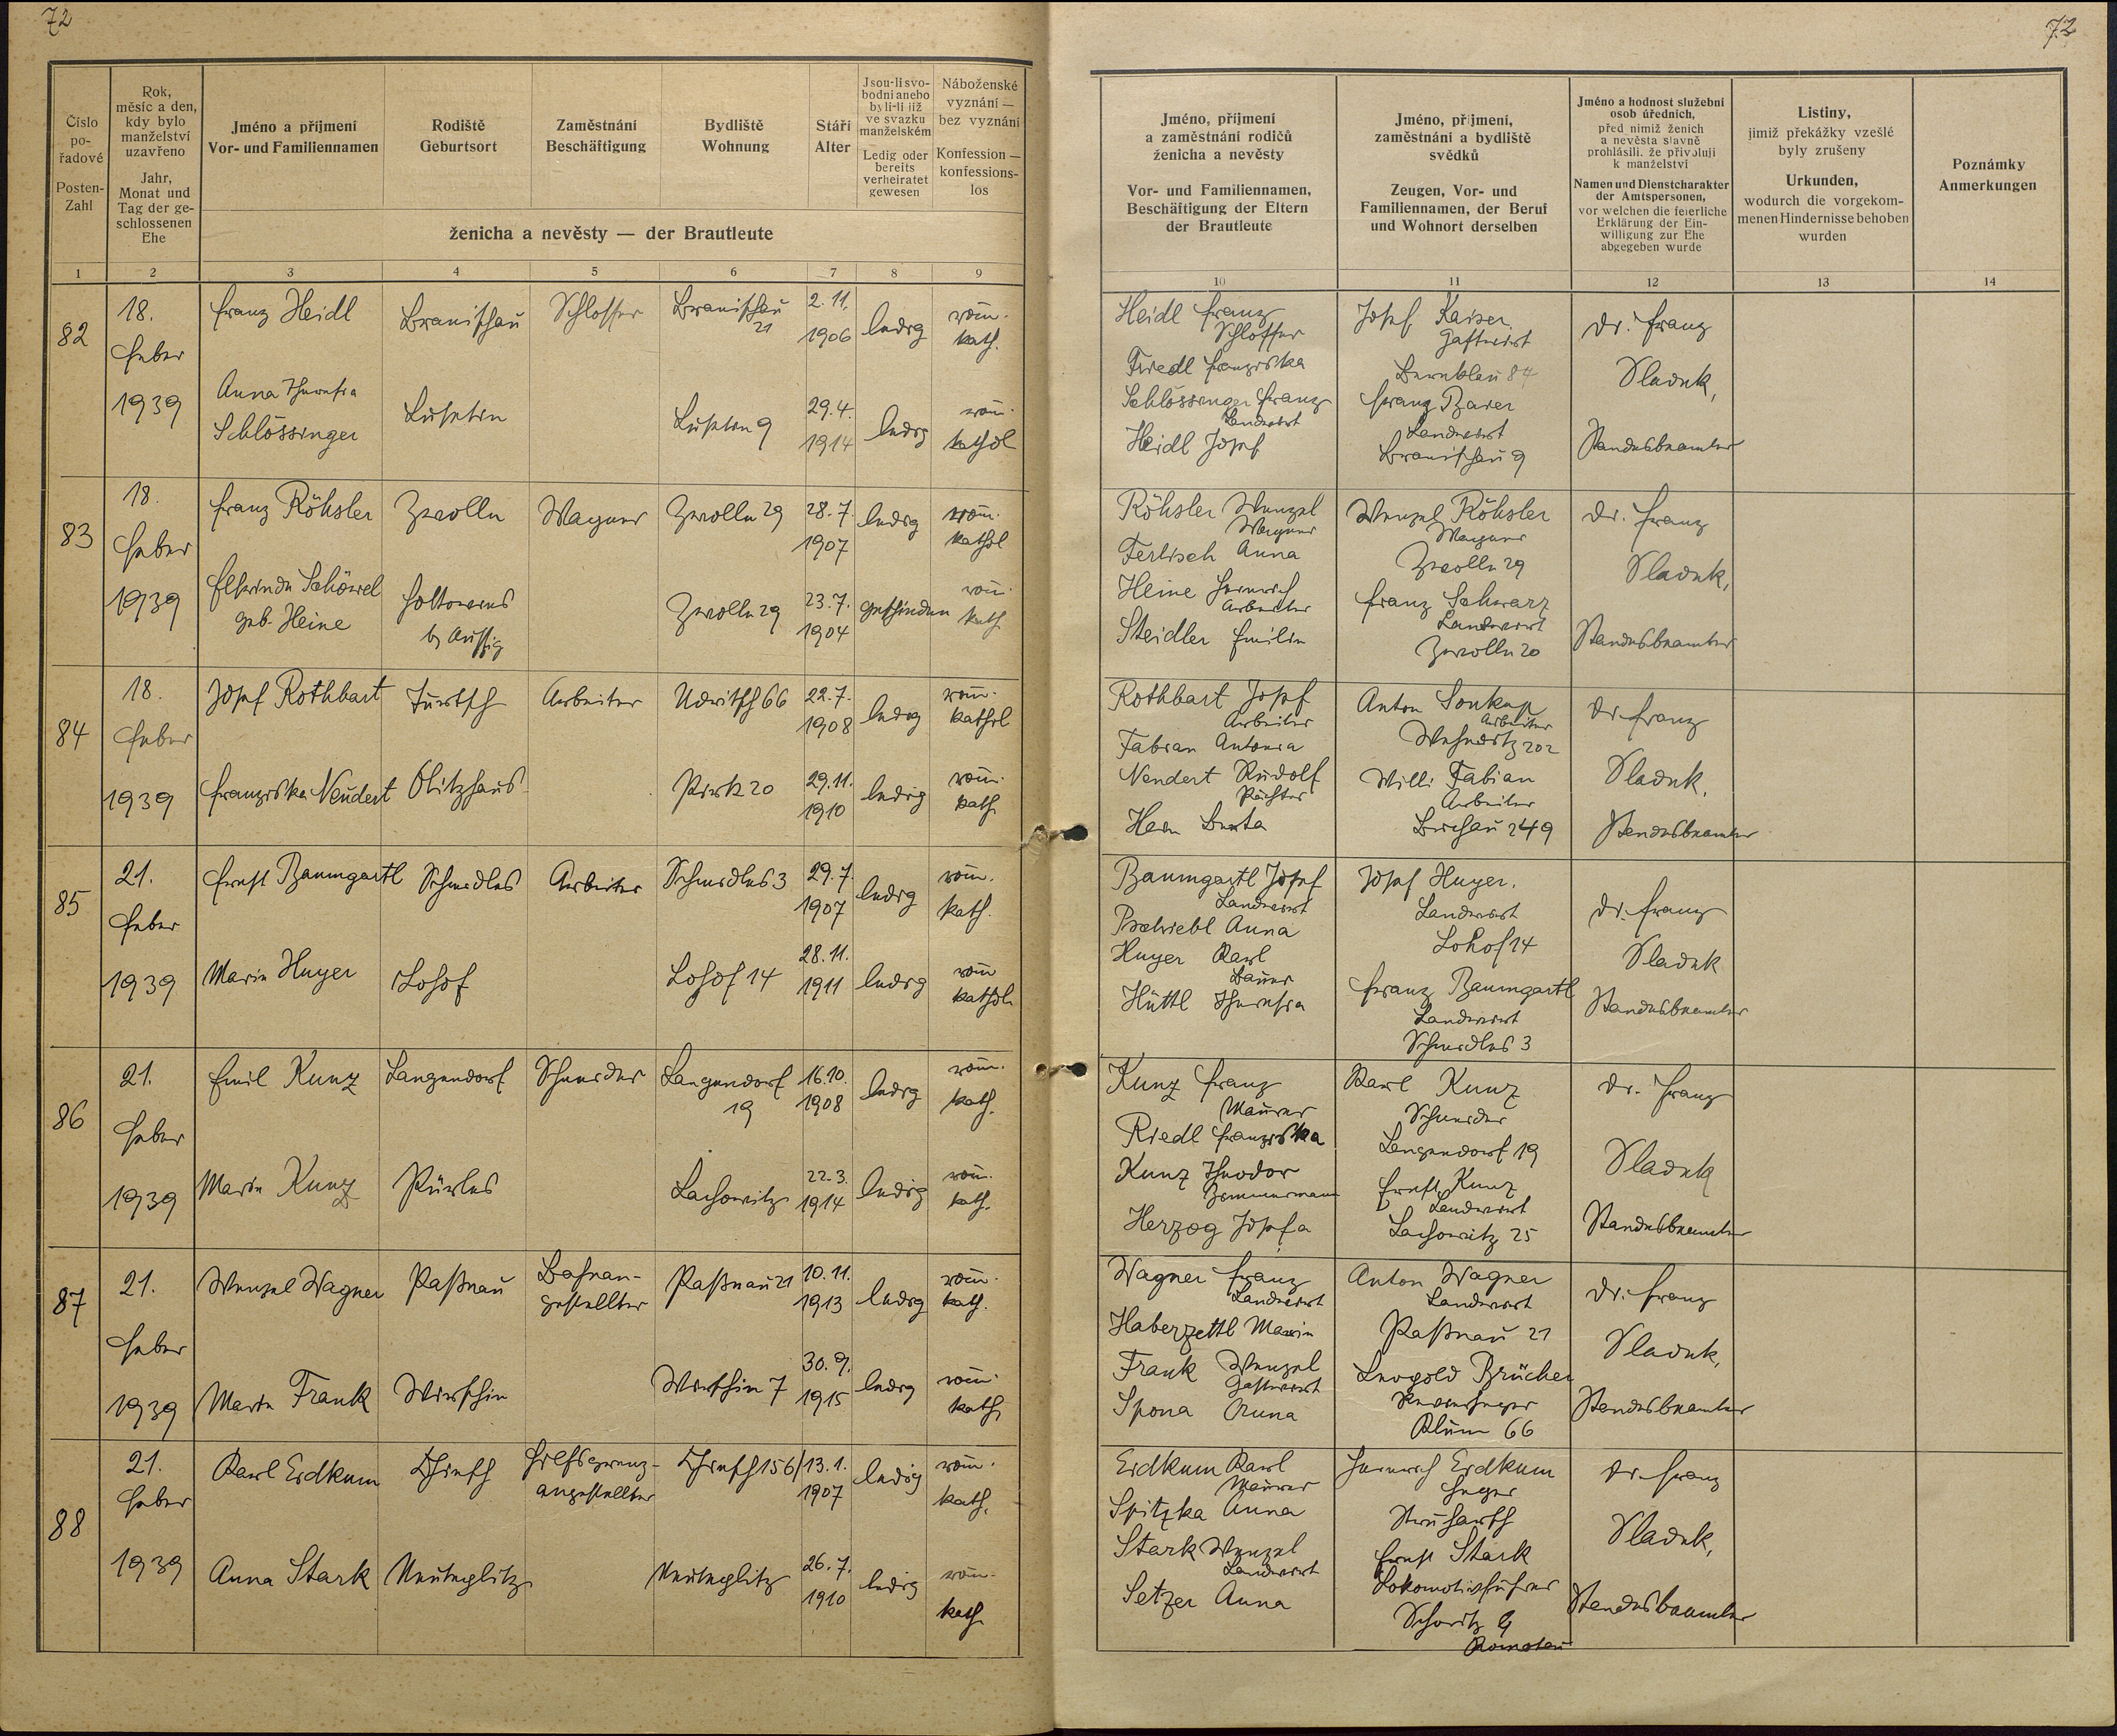 72
72
Číslo
po-
řadové
Posten-
Zahl
Rok,
měsíc a den,
kdy bylo
manželství
uzavřeno
Jahr,
Monat und
Tag der ge-
schlossenen
Ehe
Jméno a příjmení
Vor- und Familiennamen
Rodiště
Geburtsort
Zaměstnání
Beschäftigung
Bydliště
Wohnung
Stáří
Alter
Jsou-li svo-
bodni anebo
byli-li již
ve svazku
manželském
Ledig oder
bereits
verheiratet
gewesen
Náboženské
vyznání —
bez vyznání
Konfession —
konfessions-
los
ženicha a nevěsty — der Brautleute
Jméno, příjmení
a zaměstnání rodičů
ženicha a nevěsty
Vor- und Familiennamen,
Beschäftigung der Eltern
der Brautleute
Jméno, příjmení,
zaměstnání a bydliště
svědků
Zeugen, Vor- und
Familiennamen, der Beruf
und Wohnort derselben
Jméno a hodnost služební
osob úředních,
před nimiž ženich
a nevěsta slavně
prohlásili, že přivolují
k manželství
Namen und Dienstcharakter
der Amtspersonen,
vor welchen die feierliche
Erklärung der Ein-
willigung zur Ehe
abgegeben wurde
Listiny,
jimiž překážky vzešlé
byly zrušeny
Urkunden,
wodurch die vorgekom-
menen Hindernisse behoben
wurden
Poznámky
Anmerkungen
1 2 3 4 5 6 7 8 9
10 11 12 13 14
82
18.
Feber
1939
Franz Heidl
Branischau
Schlosser
Branischau
21
2.11.
1906
ledig
röm.
kath.
Anna Theresia
Schlössinger
Luschtin 
Luschtin 9
29.4.
1914
ledig
röm.
kathol
Heidl Franz
Schlosser
Friedl Franziska
Schlössinger Franz
Landwirt
Heidl Josef
Josef Kaiser
Gastwirt
84
Franz Baier
Landwirt
Branischau 9
Dr. Franz
Sladek,
Standesbeamter
83
18.
Feber
1939
Franz Röhsler
Zwolln
Wagner
Zwolln 29
28.7.
1907
ledig
röm.
kathol
Elfrinde
geb. Heine
b/ Aussig
Zwolln 29
23.7.
1904
geschieden
röm.
kath.
Röhsler Wenzel
Wagner
Ferlisch Anna
Heine Heinrich
Arbeiter
Steidler Emilie
Wenzel Röhsler
Wagner
Zwolln 29
Franz Schwarz
Landwirt
Zwolln 20
Dr. Franz
Sladek,
Standesbeamter
84
18.
Feber
1939
Josef Rothbart
Turtsch
Arbeiter
Udritsch 66
22.7.
1908
ledig
röm.
kathol
Franziska Neudert
Olitzhaus
Pirk 20
29.11.
1910
ledig
röm.
kath.
Rothbart Josef
Arbeiter
Fabian Antonia
Neudert Rudolf
Pächter
Berta
Anton Soukup
Arbeiter
202
Willi Fabian
Arbeiter
Buchau 249
Dr. Franz
Sladek,
Standesbeamter
85
21.
Feber
1939
Ernst Baumgartl
Schmidles
Arbeiter
Schmidles 3
29.7.
1907
ledig
röm.
kath.
Marie Huyer
Lohof
Lohof 14
28.11.
1911
ledig
röm
kathol.
Baumgartl Josef
Landwirt
Anna
Huyer Karl
Bauer
Hüttl Theresia
Josef Huyer.
Landwirt
Lohof 14
Franz Baumgartl
Landwirt
Schmidles 3
Dr. Franz
Sladek
Standesbeamter
86
21.
Feber
1939
Emil Kunz
Langendorf
Schneider
Langendorf
19
16.10.
1908
ledig
röm.
kath.
Marie Kunz
Pürles
Lachowitz
22.3.
1914
ledig
röm.
kath.
Kunz Franz
Maurer
Riedl Franziska
Kunz Theodor
Zimmermann
Herzog Josefa
Karl Kunz
Schneider
Langendorf 19
Ernst Kunz
Landwirt
Lachowitz 25
Dr. Franz
Sladek
Standesbeamter
87
21.
Feber
1939
Wenzel Wagner
Paßnau
Bahnan-
gestellter
Paßnau 21
10.11.
1913
ledig
röm.
kath.
Marie Frank
Wirschin
Wirschin 7
30.9.
1915
ledig
röm.
kath.
Wagner Franz
Landwirt
Haberzettl Marie
Frank Wenzel
Gastwirt
Spona Anna
Anton Wagner
Landwirt
Paßnau 21
Leopold Brücher
Klum 66
Dr. Franz
Sladek,
Standesbeamter
88
21.
Feber
1939
Karl Erdkum
Chiesch
Hilfsgrenz-
angestellter
Chiesch 156/
13.1.
1907
ledig
röm.
kath.
Anna Stark
Neuteglitz
Neuteglitz
26.7.
1910
ledig
röm.
kath
Erdkum Karl
Maurer
Spitzka Anna
Stark Wenzel
Landwirt
Setzer Anna
Heinrich Erdkum
Heger
Struharsch
Ernst Stark
Lokomotivführer
Komotau
Dr. Franz
Sladek,
Standesbeamter